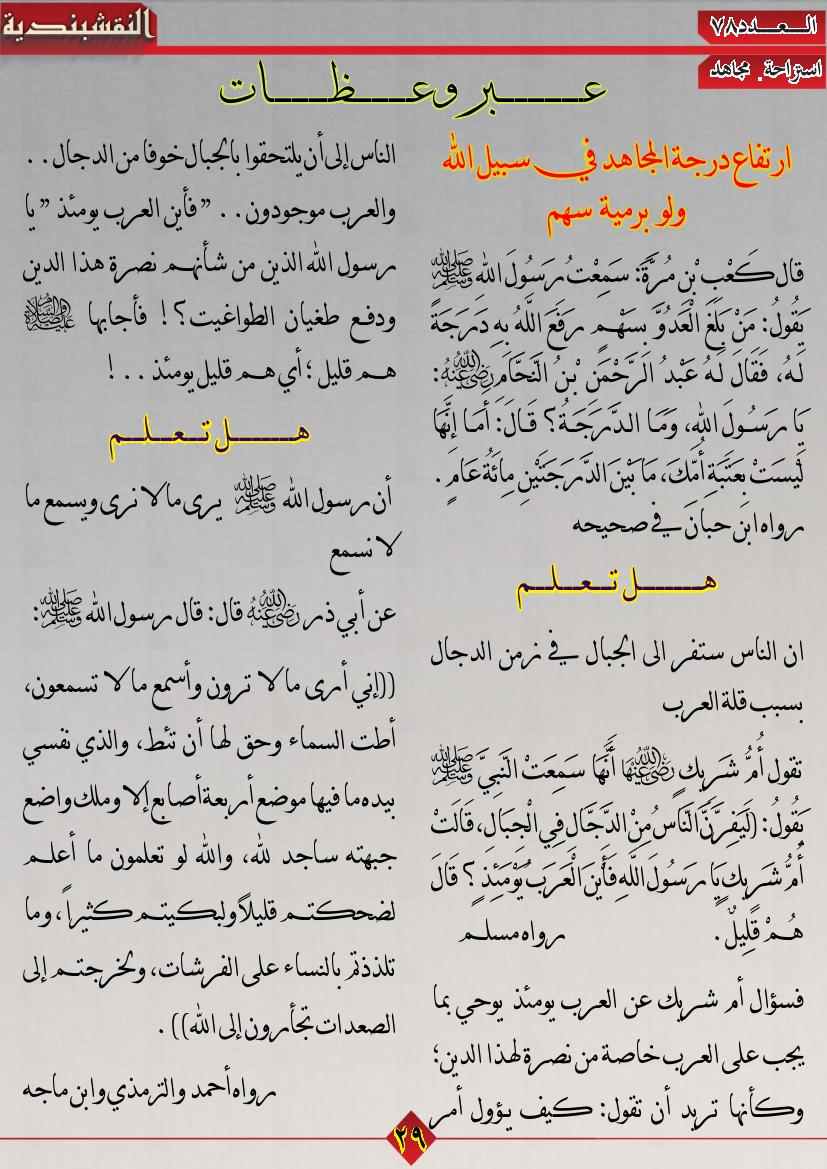 النقشبندية
العدد ٧٨
استراحة. مجاهد
عبر وعظات
ارتفاع درجة المجاهد في سبيل الله
ولو برمية سهم
قال كَعْبِ بْنِ مُرَّةَ: سَمِعْتُ رَسُولَ اللهِ ﷺ
يَقُولُ: مَنْ بَلَغَ الْعَدُوَّ بِسَهْمٍ رَفَعَ اللَّهُ بِهِ دَرَجَةً
لَهُ، فَقَالَ لَهُ عَبْدُ الرَّحْمَنِ بْنُ النَّحَّامِ رَضِيَ اللهُ عَنْهُ:
يَا رَسُولَ اللهِ، وَمَا الدَّرَجَةُ؟ قَالَ: أَمَا إِنَّهَا
لَيْسَتْ بِعَتَبَةِ أُمِّكَ، مَا بَيْنَ الدَّرَجَتَيْنِ مِائَةُ عَامٍ.
رواه ابن حبان في صحيحه
هل تعلم
ان الناس ستفر الى الجبال في زمن الدجال
بسبب قلة العرب
تقول أُمُّ شَرِيكٍ رَضِيَ اللهُ عَنْهَا أَنَّهَا سَمِعَتْ النَّبِيَّ ﷺ
يَقُولُ: (لَيَفِرَّنَّ النَّاسُ مِنْ الدَّجَّالِ فِي الْجِبَالِ، قَالَتْ
أُمُّ شَرِيكٍ يَا رَسُولَ اللَّهِ فَأَيْنَ الْعَرَبُ يَوْمَئِذٍ؟ قَالَ
هُمْ قَلِيلٌ. رواه مسلم
فسؤال أم شريك عن العرب يومئذ يوحي بما
يجب على العرب خاصة من نصرة لهذا الدين؛
وكأنها تريد أن تقول: كيف يؤول أمر
الناس إلى أن يلتحقوا بالجبال خوفا من الدجال ..
والعرب موجودون .. "فأين العرب يومئذ" يا
رسول الله الذين من شأنهم نصرة هذا الدين
ودفع طغيان الطواغيت؟! فأجابها عليه الصلاة والسلام
هم قليل؛ أي هم قليل يومئذ ..!
هل تعلم
أن رسول الله ﷺ يرى ما لا نرى ويسمع ما
لا نسمع
عن أبي ذر رَضِيَ اللهُ عَنْهُ قال: قال رسول الله ﷺ:
((إني أرى ما لا ترون وأسمع ما لا تسمعون،
أطت السماء وحق لها أن تئط، والذي نفسي
بيده ما فيها موضع أربعة أصابع إلا وملك واضع
جبهته ساجد لله، والله لو تعلمون ما أعلم
لضحكتم قليلاً ولبكيتم كثيراً، وما
تلذذتم بالنساء على الفرشات، ولخرجتم إلى
الصعدات تجأرون إلى الله)).
رواه أحمد والترمذي وابن ماجه
٢٩